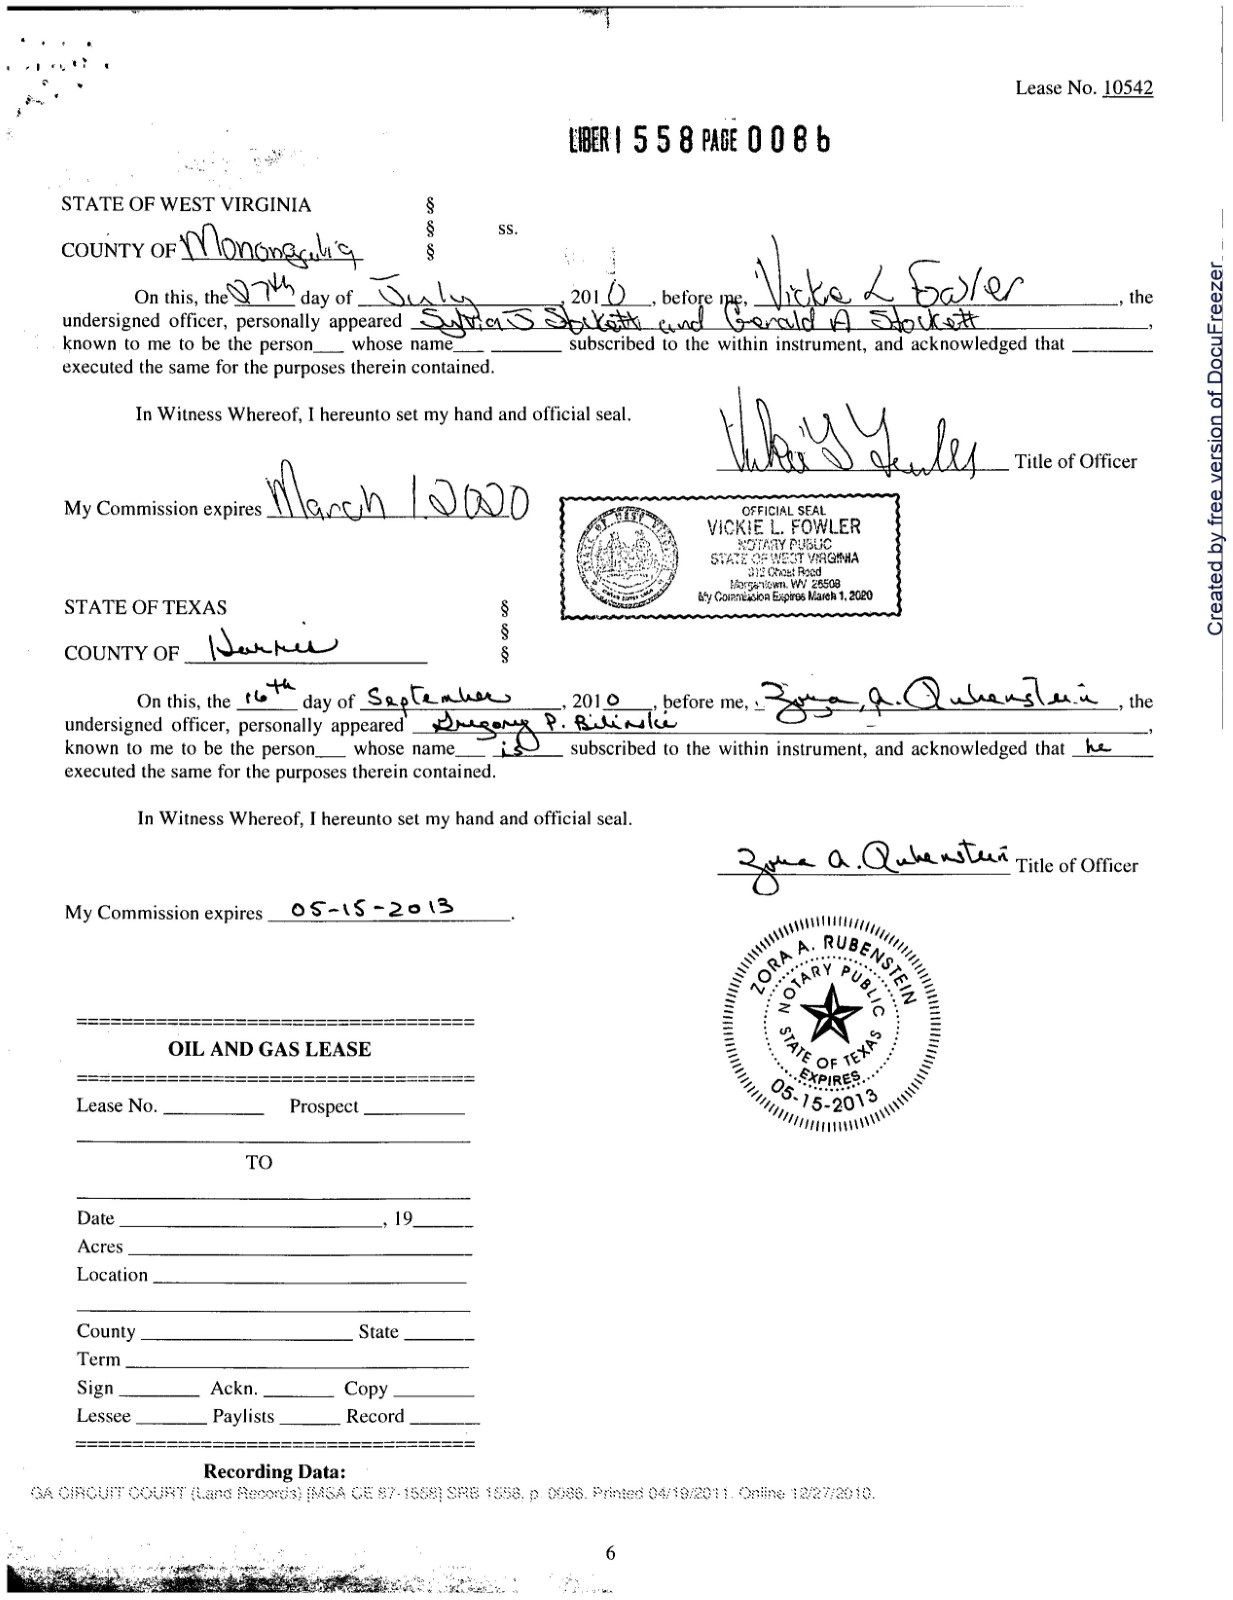 Lease No. 10542
LIBER 1 5 5 8 PAGE 0 0 8 6
STATE OF WEST VIRGINIA §
§ ss.
COUNTY OF Monongalia §
On this, the 27th day of July, 2010, before me, Vickie L Fowler, the
undersigned officer, personally appeared Sylvia J Stockett and Gerald A Stockett,
known to me to be the person___ whose name___ ______ subscribed to the within instrument, and acknowledged that ________
executed the same for the purposes therein contained.
In Witness Whereof, I hereunto set my hand and official seal.
Title of Officer
My Commission expires March 1, 2020
OFFICIAL SEAL
VICKIE L. FOWLER
NOTARY PUBLIC
STATE OF WEST VIRGINIA
Morgantown, WV 26508
My Commission Expires March 1, 2020
STATE OF TEXAS §
§
COUNTY OF Harris §
On this, the 16th day of September, 2010, before me, Zora A. Rubenstein, the
undersigned officer, personally appeared Gregory P. Bilinski,
known to me to be the person___ whose name___ is subscribed to the within instrument, and acknowledged that he
executed the same for the purposes therein contained.
In Witness Whereof, I hereunto set my hand and official seal.
Zora A. Rubenstein Title of Officer
My Commission expires 05-15-2013.
ZORA A. RUBENSTEIN
NOTARY PUBLIC
STATE OF TEXAS
EXPIRES
05-15-2013
OIL AND GAS LEASE
Lease No. __________ Prospect __________
TO
Date __________, 19______
Acres __________
Location __________
County __________ State _______
Term __________
Sign ________ Ackn. _______ Copy ________
Lessee _______ Paylists ______ Record _______
Recording Data:
GA CIRCUIT COURT (Land Records) [MSA CE 87-1558] SRB 1558, p. 0086. Printed 04/19/2011. Online 12/27/2010.
6
Created by free version of DocuFreezer